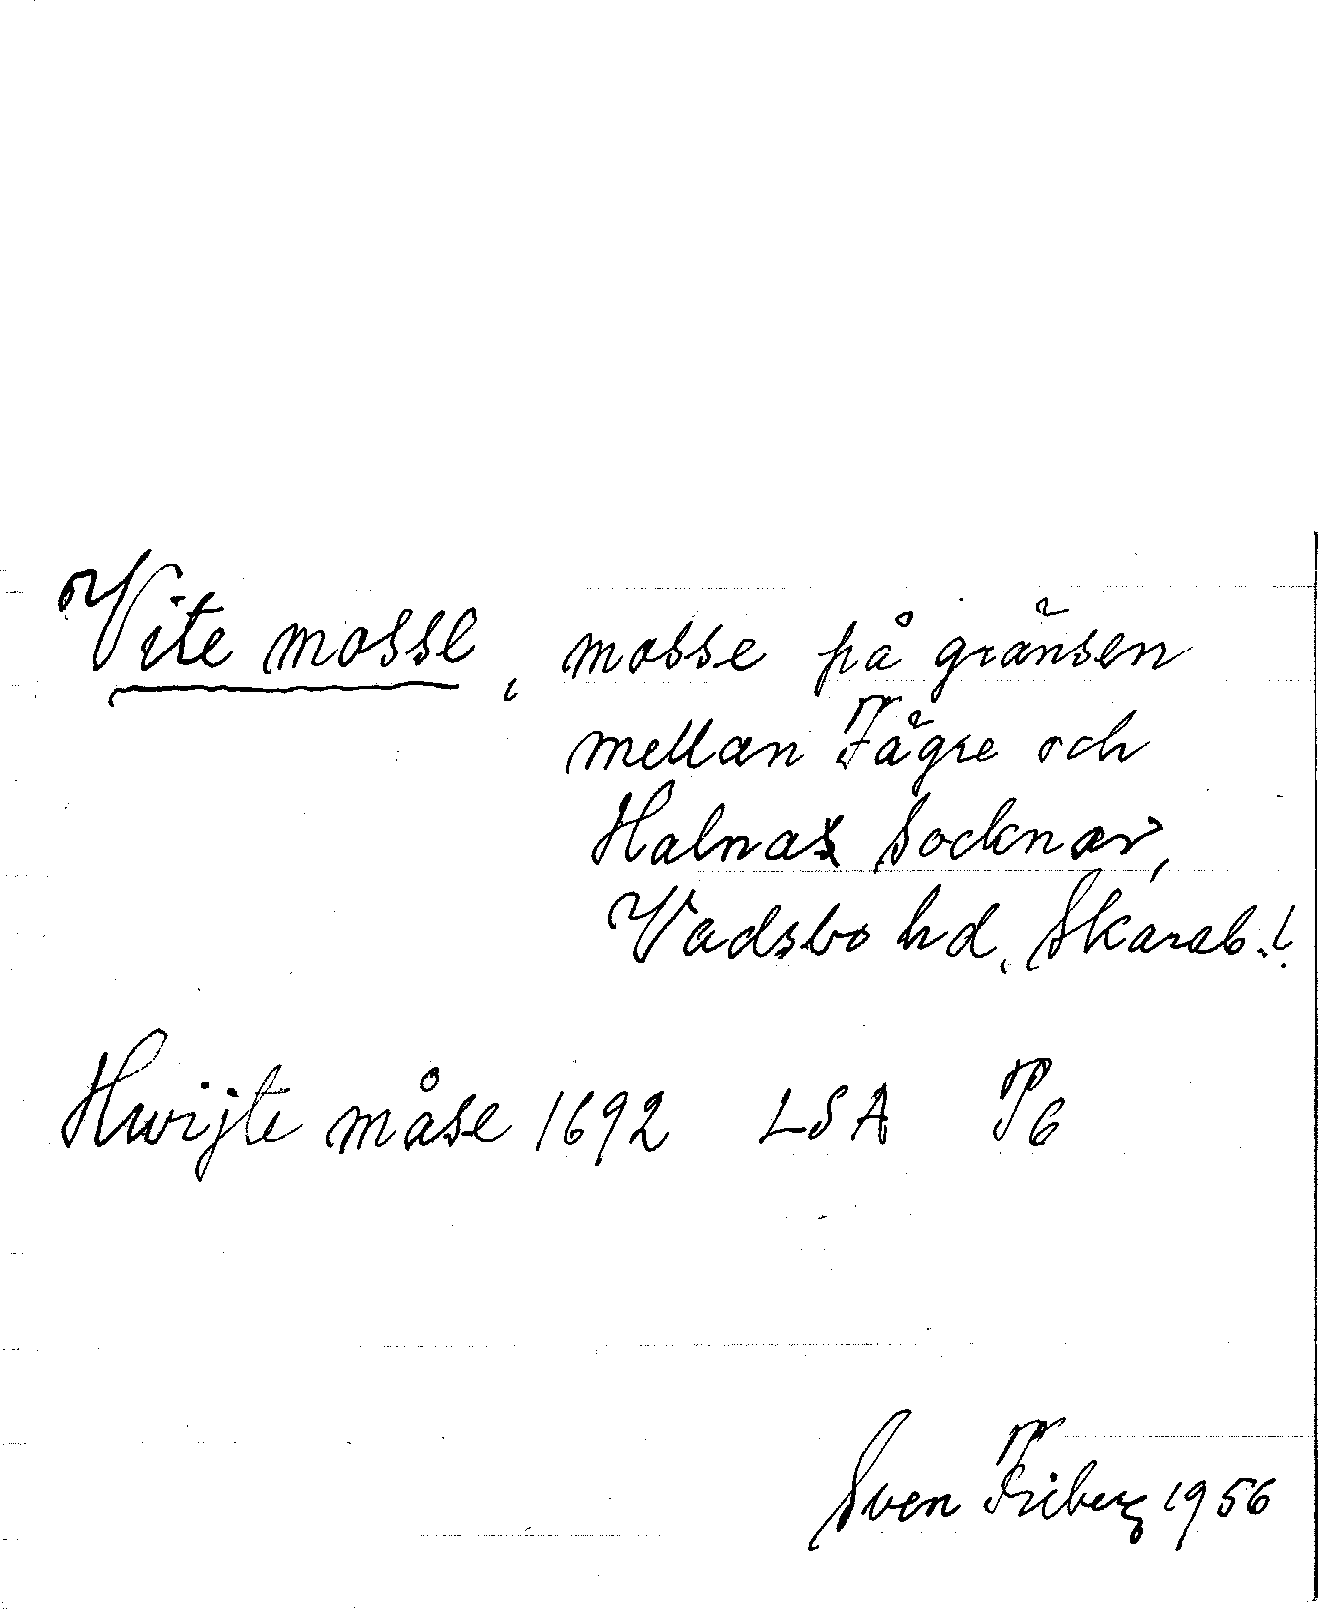 Vite mosse, mosse på gränsen
mellan Fägre och
Halna socknar,
Vadsbo hd, Skarab. l.
Hwijte måse 1692 LSA P6
Sven Friberg 1956